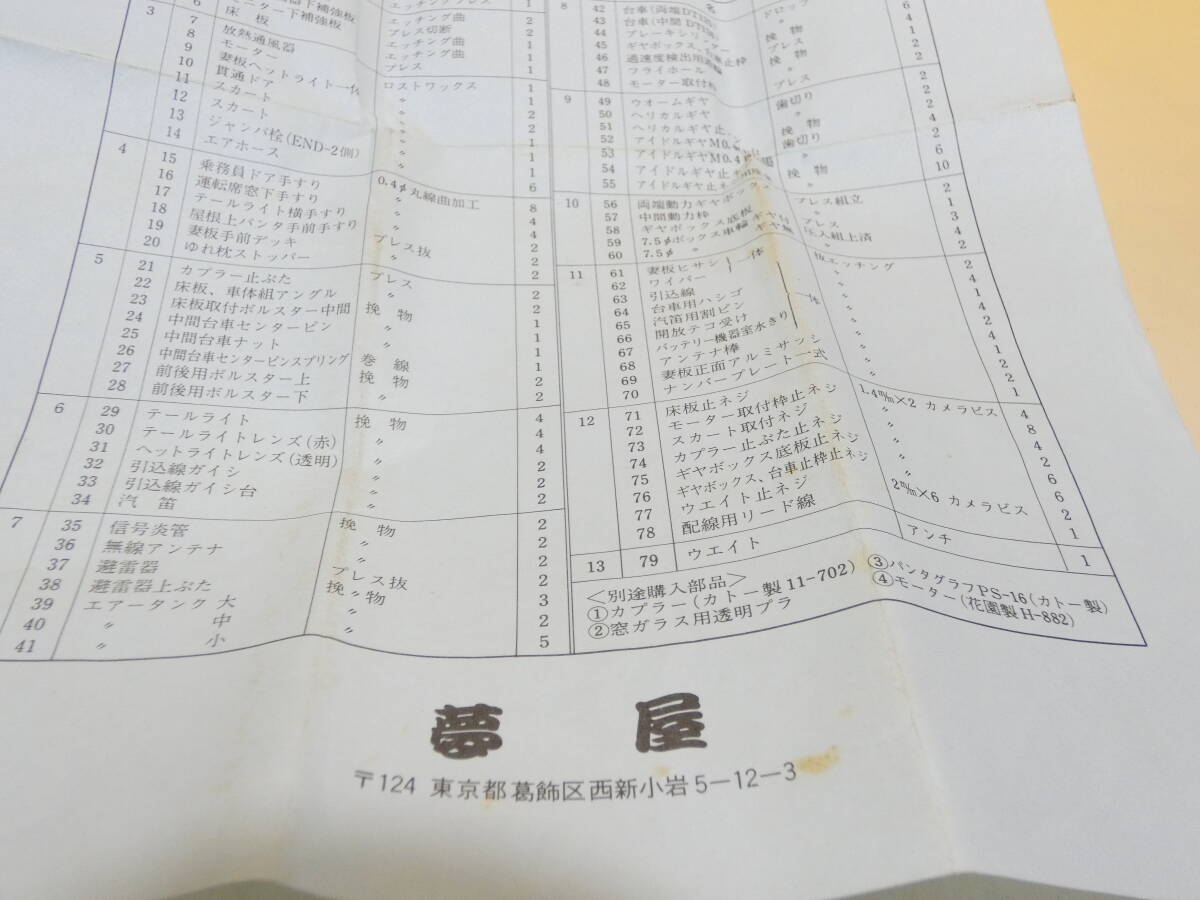 下補強板 エッチングプレス 1
6 モニター下補強板 エッチング曲 1
3 床板 プレス切断 2
7 エッチング曲 2
8 放熱通風器 エッチング曲 2
9 モーター プレス
10 妻板ヘットライト一体 ロストワックス 1
11 貫通ドア 〃 1
12 スカート 〃 2
13 スカート 〃 1
ジャンパ栓(END-2側) 〃 1
14 エアホース 〃 6
4 15 乗務員ドア手すり 0.4φ丸線曲加工 8
16 運転席窓下手すり 〃 4
17 テールライト横手すり 〃 4
18 屋根上パンタ手前手すり 〃 2
19 妻板手前デッキ プレス抜 2
20 ゆれ枕ストッパー 〃 2
5 21 カプラー止ぶた プレス 2
22 床板、車体組アングル 〃 2
23 床板取付ボルスター中間 挽物 1
24 中間台車センターピン 〃 1
25 中間台車ナット 〃 1
26 中間台車センターピンスプリング 巻線 1
27 前後用ボルスター上 挽物 2
28 前後用ボルスター下 〃 2
6 29 テールライト 挽物 4
30 テールライトレンズ(赤) 〃 4
31 ヘットライトレンズ(透明) 〃 2
32 引込線ガイシ 〃 2
33 引込線ガイシ台 〃 2
34 汽笛 〃 2
7 35 信号炎管 挽物 2
36 無線アンテナ 〃 2
37 避雷器 〃 2
38 避雷器上ぶた プレス抜 2
39 エアータンク 大 挽物 3
40 〃 中 〃 2
41 〃 小 〃 5
8 42 台車(両端DT ドロップ
43 台車(中間DT 〃 6
44 ブレーキシリンダー 挽物 4
45 ギヤボックス、台車止枠 プレス 1
46 過速度検出用 挽物 2
47 フライホール 〃 2
48 モーター取付枠 プレス
9 49 ウオームギヤ 歯切り 2
50 ヘリカルギヤ 〃 2
51 ヘリカルギヤ止 挽物 2
52 アイドルギヤM0. 歯切り 4
53 アイドルギヤM0.4 〃 2
54 アイドルギヤ止 挽物 6
55 アイドルギヤ止 〃 10
10 56 両端動力ギヤボックス プレス組立 2
57 中間動力枠 〃 1
58 ギヤボックス底板 プレス 3
59 7.5φボックス車輪 ギヤ付 圧入組上済 4
60 7.5φ 〃 ギヤ無 〃 2
11 61 妻板ヒサシ 一体 板エッチング 2
62 ワイパー 〃 4
63 引込線 〃 1
64 台車用ハシゴ 〃 4
65 汽笛用割ピン 一体 〃 2
66 開放テコ受け 〃 4
67 バッテリー機器室水きり 〃 1
68 アンテナ棒 〃 2
69 妻板正面アルミサッシ 〃 2
70 ナンバープレート一式 〃 1
12 71 床板止ネジ 1.4m/m×2 カメラビス 4
72 モーター取付枠止ネジ 〃 8
73 スカート取付ネジ 〃 4
74 カプラー止ぶた止ネジ 〃 2
75 ギヤボックス底板止ネジ 〃 6
76 ギヤボックス、台車止枠止ネジ 〃 6
77 ウエイト止ネジ 2m/m×6 カメラビス 2
78 配線用リード線 1
13 79 ウエイト アンチ 1
<別途購入部品>
①カプラー(カトー製11-702) ③パンタグラフPS-16(カトー製)
②窓ガラス用透明プラ ④モーター(花園製H-882)
夢屋
〒124 東京都葛飾区西新小岩5-12-3